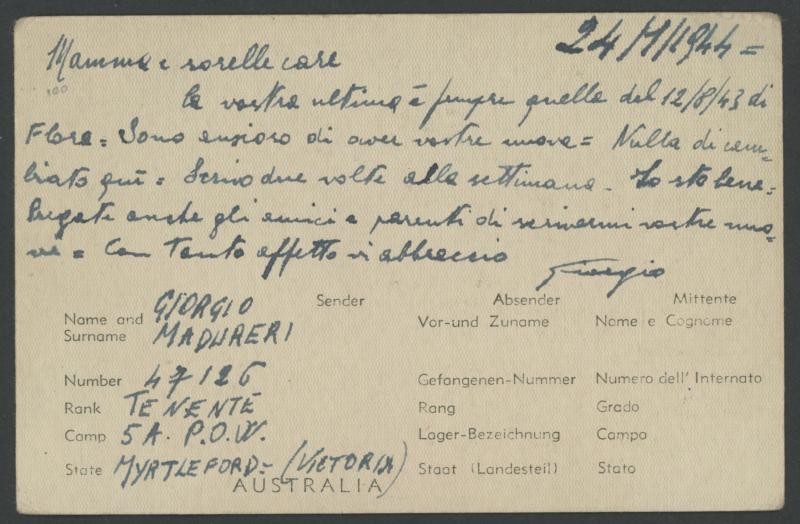 24/1/1944 =
Mamma e sorelle care
100
la vostra ultima è sempre quella del 12/8/43 di
Flora = Sono ansioso di aver vostre nuove = Nulla di cam-
biato quì = Scrivo due volte alla settimana - Io sto bene =
Pregate anche gli amici e parenti di scrivermi vostre nuo-
ve = Con tanto affetto vi abbraccio
Giorgio
Sender Absender Mittente
Name and Surname GIORGIO MADURERI Vor-und Zuname Nome e Cognome
Number 47126 Gefangenen-Nummer Numero dell' Internato
Rank TENENTE Rang Grado
Camp 5A. P.O.W. Lager-Bezeichnung Campo
State MYRTLEFORD - (VICTORIA) Staat (Landesteil) Stato
AUSTRALIA